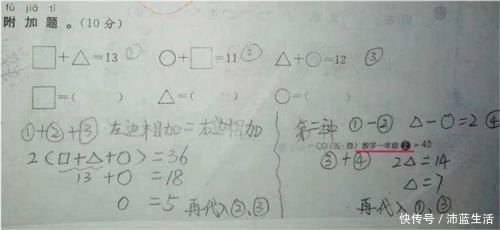 fù jiā tí
附加题。(10分)
□+△=13 ① ○+□=11 ② △+○=12 ③
□=( ) △=( ) ○=( )
①+②+③ 左边相加=右边相加
2(□+△+○)=36
13+○=18
○=5 再代入②、③
第二种 ①-② △-○=2 ④
QD(五·四) 数学一年级 上 40
③+④ 2△=14
△=7
再代入①、③
快传号/沛蓝生活